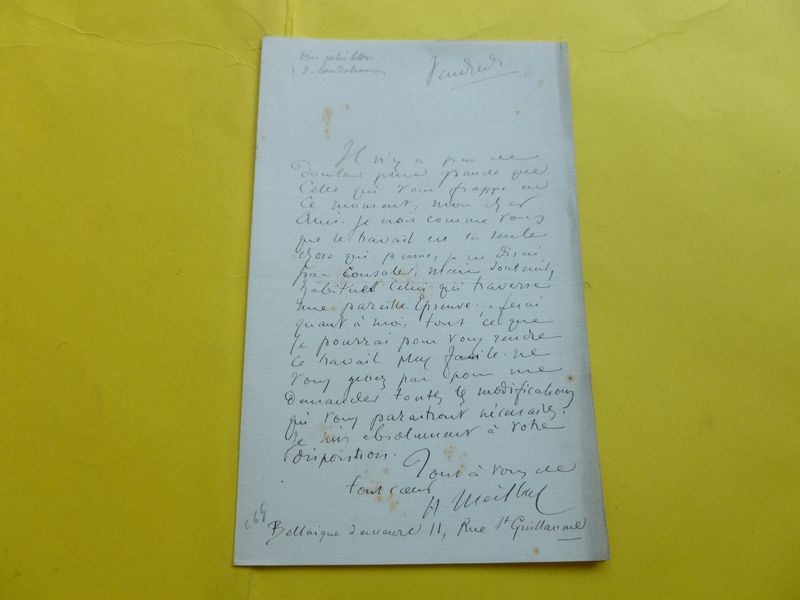 Très jolie lettre
de condoléances
Vendredi
Il n'y a pas de
douleur plus grande que
celle qui vous frappe en
ce moment, mon cher
Ami. Je crois comme vous
que le travail est la seule
chose qui puisse, je ne dirai
pas consoler, mais soutenir,
celui qui traverse
une pareille épreuve. Je ferai
quant à moi, tout ce que
je pourrai pour vous rendre
ce travail plus facile. ne
vous gênez pas pour me
demander toutes les modifications
qui vous paraitront nécessaires.
Je suis absolument à votre
disposition.
Tout à vous de
tout coeur
H. Meilhac
Bellaigue demeure 11, Rue St Guillaume